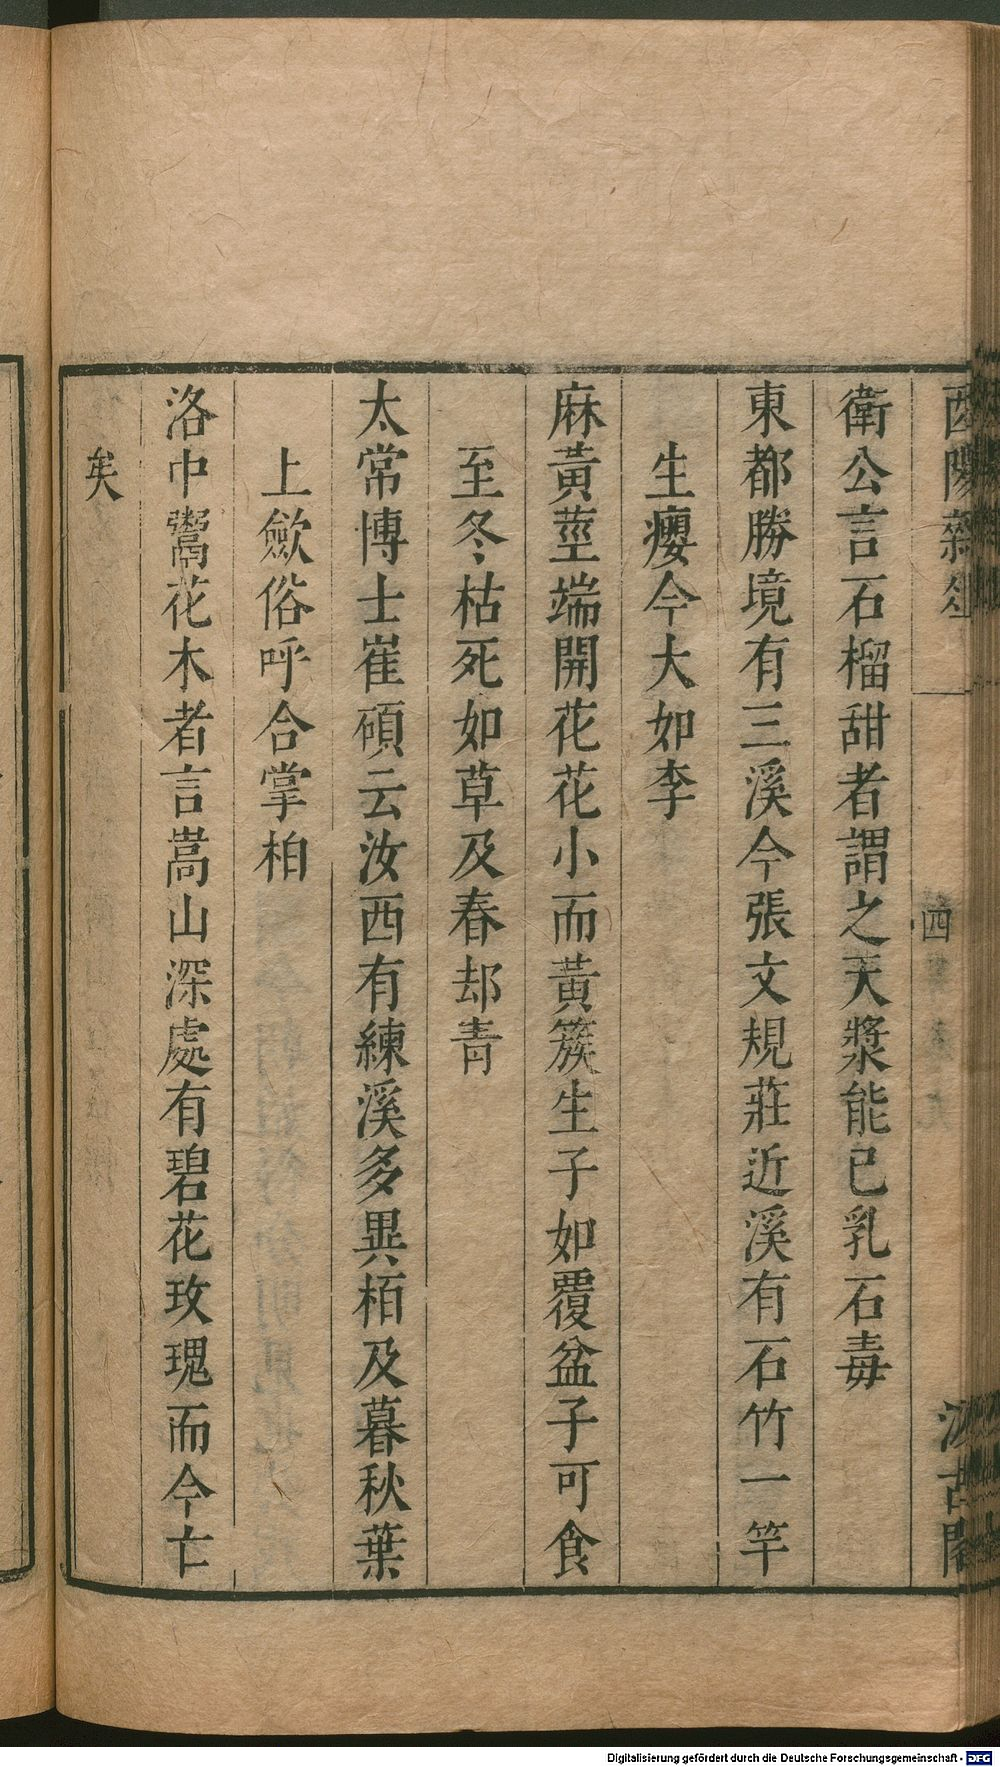 酉陽雜俎
四
汲古閣
衛公言石榴甜者謂之天漿能已乳石毒
東都勝境有三溪今張文規莊近溪有石竹一竿
生癭今大如李
麻黃莖端開花花小而黃簇生子如覆盆子可食
至冬枯死如草及春却青
太常博士崔碩云汝西有練溪多異栢及暮秋葉
上歛俗呼合掌柏
洛中鬻花木者言嵩山深處有碧花玫瑰而今亡
矣
Digitalisierung gefördert durch die Deutsche Forschungsgemeinschaft - DFG